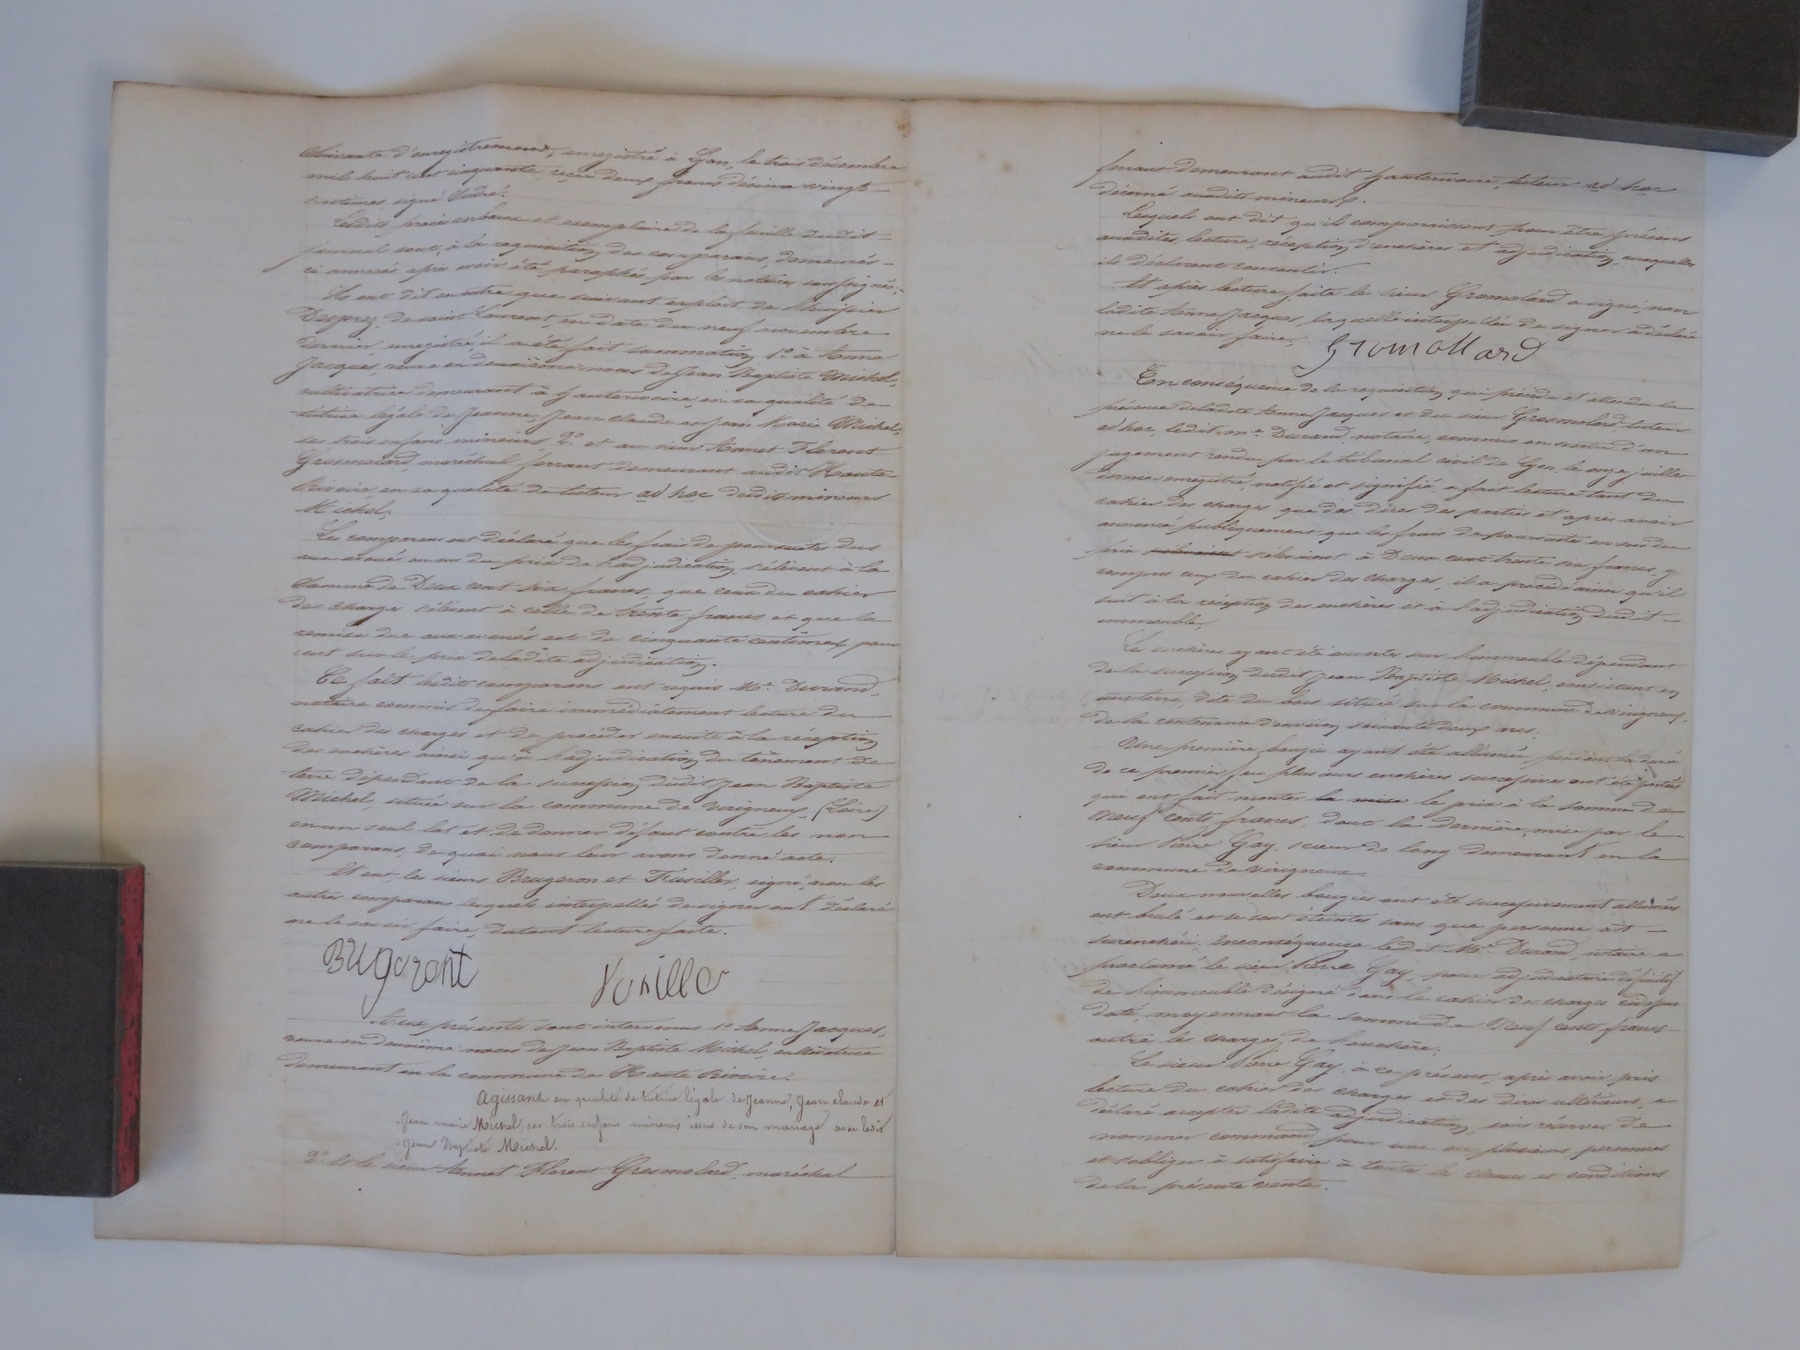 suivante d'enregistrement, enregistré à Lyon, le trois décembre
mil huit cent cinquante, reçu deux francs décime vingt
centimes, signé
Lesdits placards et exemplaire de la feuille dudit
journal sont, à la requisition des comparans, demeurés
ci annexés après avoir été paraphés par les notaires soussignés.
Ils ont dit en outre que suivant exploit de l'huissier
Desprez, de saint Laurent, en date du neuf novembre
dernier, enregistré, il a été fait sommation 1° à Anne
Jacques, veuve en deuxième noces de Jean Baptiste Michel,
cultivatrice demeurant à hauterivoire, en sa qualité de
tutrice légale de Jeanne, Jean Claude et Jean Marie Michel,
ses trois enfans mineurs, 2° et au sieur Annet Florent
Gresmolard, maréchal ferrant demeurant audit Haute
Rivoire en sa qualité de tuteur ad hoc desdits mineurs
Michel;
Les comparans ont déclaré que les frais de poursuites dus
aux avoué en sus du prix de l'adjudication, s'élèvent à la
somme de Deux cent six francs, que ceux du cahier
des charges s'élèvent à celle de trente francs et que la
remise due aux avoués est de cinquante centimes pour
cent sur le prix de ladite adjudication.
Ce fait lesdits comparans ont requis Me Durand,
notaire commis de faire immédiatement lecture du
cahier des charges et de procéder ensuite à la réception
des enchères ainsi qu'à l'adjudication du tènement de
terre dépendant de la succession dudit Jean Baptiste
Michel, située sur la commune de Virigneux, (Loire)
en un seul lot et de donner défaut contre les non
comparans, de quoi nous leur avons donné acte.
Et ont, les sieurs Brugeron et Fusiller, signé, non les
autres comparans lesquels interpellés de signer ont déclaré
ne le savoir faire, dutout lecture faite.
Aux présentes sont intervenus 1° Anne Jacques,
veuve en deuxième noces de Jean Baptiste Michel, cultivatrice
demeurant en la commune de Haute Rivoire.
Agissant en qualité de tutrice légale de Jeanne, Jean claude et
Jean marie Michel, ses trois enfans mineurs issus de son mariage avec ledit
Jean Baptiste Michel.
2° Et le sieur Annet Florent Gresmolard, maréchal
ferrant demeurant audit hauterivoire, tuteur ad hoc
décerné auxdits mineurs.
Lesquels ont dit qu'ils comparaissent pour être présens
auxdites, lecture, réception d'enchères et adjudication auxquelles
ils déclarent consentir.
Et après lecture faite le sieur Gromolard a signé, non
ladite Anne Jacques, laquelle interpellée de signer a déclaré
ne le savoir faire,
Gromollard
En conséquence de la requisition qui précède et attendu la
présence deladite Anne Jacques et du sieur Gresmolard tuteur
ad hoc, ledit Me Durand, notaire, commis en vertu d'un
jugement rendu par le tribunal civil de Lyon, le onze juillet
dernier enregistré, notifié et signifié, a fait lecture tant du
cahier des charges que des dires des parties et après avoir
annoncé publiquement que les frais de poursuite en sus du
prix s'élevaient à Deux cent trente six francs, y
compris ceux du cahier des charges, il a procédé ainsi qu'il
suit à la réception des enchères et à l'adjudication dudit
immeuble,
Les enchères ayant été ouverte sur l'immeuble dépendant
de la succession dudit Jean Baptiste Michel, consistant en
une terre, dite du bas située sur la commune de Virigneux,
de la contenance d'environ soixante deux ares.
Une première bougie ayant été allumée, pendant la durée
de ce premier feu plusieurs enchères successives ont été portées
qui ont fait monter la mise le prix à la somme de
Neuf cents francs, dont la dernière mise par le
sieur Pierre Gay, scieur de long demeurant en la
commune de Virigneux.
Deux nouvelles bougies ont été successivement allumées
ont brulé et se sont éteintes sans que personne ait
surenchéri, enconséquence ledit Me Durand, notaire a
proclamé le sieur Pierre Gay, pour adjudicataire définitif
de l'immeuble désigné dans le cahier des charges cidessus
daté, moyennant la somme de Neuf cents francs
outre les charges de l'enchère.
Le sieur Pierre Gay, à ce présent, après avoir pris
lecture du cahier des charges et des dires ultérieurs, a
déclaré accepter ladite adjudication, sous réserves de
nommer command pour une ou plusieurs personnes
et s'obliger à satisfaire à toutes les clauses et conditions
de la présente vente.